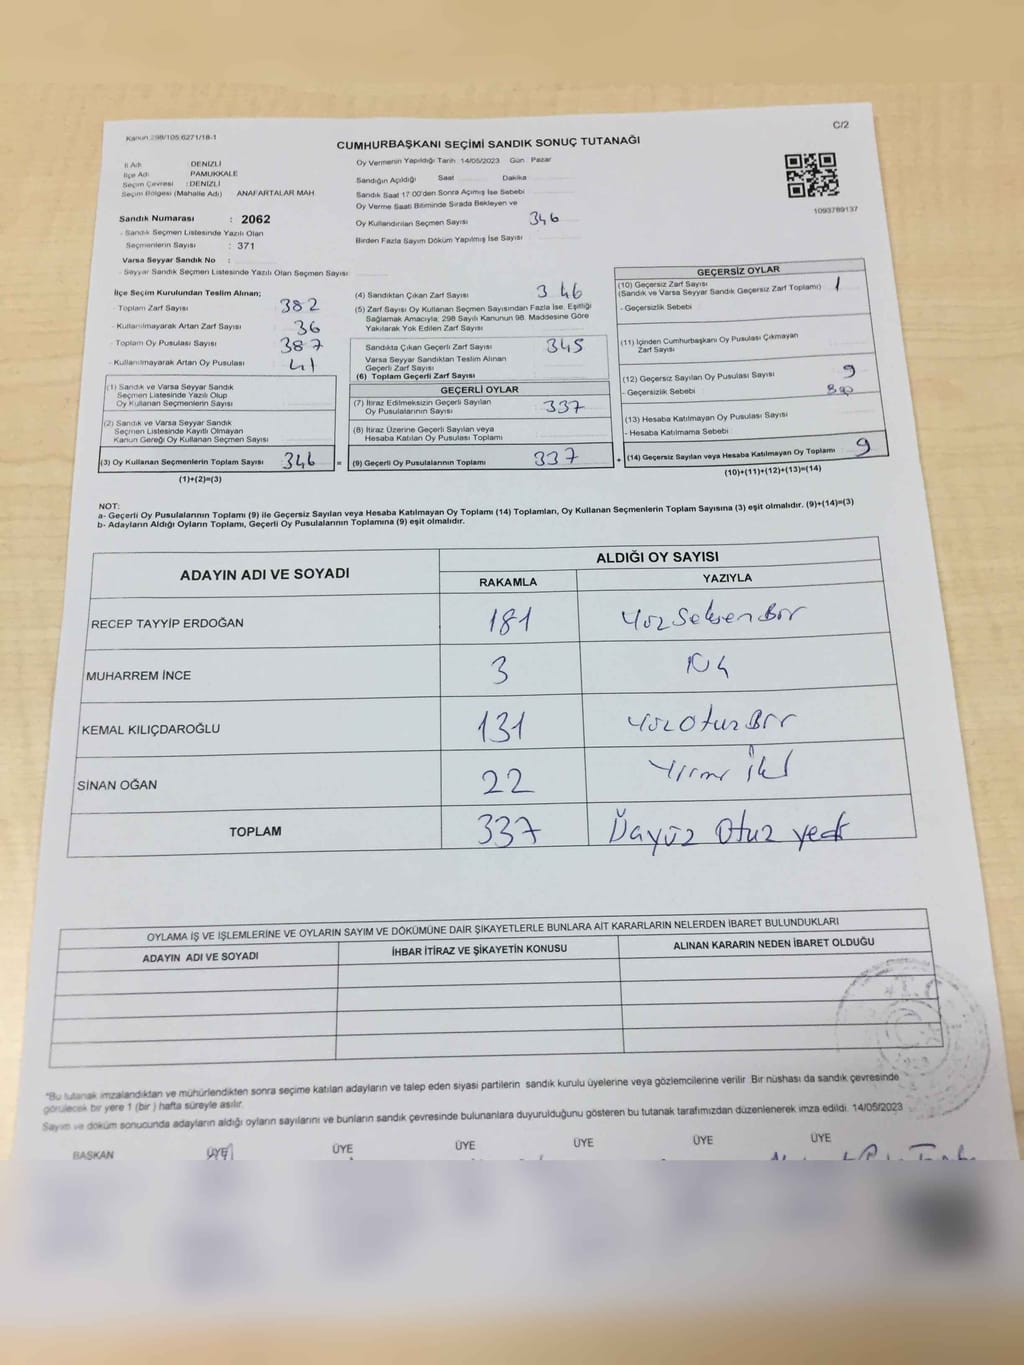 Kanun 298/105 6271/18-1
C/2
CUMHURBAŞKANI SEÇİMİ SANDIK SONUÇ TUTANAĞI
İl Adı DENİZLİ
İlçe Adı PAMUKKALE
Seçim Çevresi : DENİZLİ
Seçim Bölgesi (Mahalle Adı) ANAFARTALAR MAH.
Sandık Numarası : 2062
- Sandık Seçmen Listesinde Yazılı Olan
Seçmenlerin Sayısı : 371
Varsa Seyyar Sandık No :
- Seyyar Sandık Seçmen Listesinde Yazılı Olan Seçmen Sayısı
Oy Vermenin Yapıldığı Tarih :14/05/2023 Gün : Pazar
Sandığın Açıldığı Saat Dakika
Sandık Saat 17:00'den Sonra Açımış İse Sebebi
Oy Verme Saati Bitiminde Sırada Bekleyen ve
Oy Kullandırılan Seçmen Sayısı 346
Birden Fazla Sayım Döküm Yapılmış İse Sayısı
1093789137
İlçe Seçim Kurulundan Teslim Alınan;
- Toplam Zarf Sayısı 382
- Kullanılmayarak Artan Zarf Sayısı 36
- Toplam Oy Pusulası Sayısı 387
- Kullanılmayarak Artan Oy Pusulası 41
(1) Sandık ve Varsa Seyyar Sandık
Seçmen Listesinde Yazılı Olup
Oy Kullanan Seçmenlerin Sayısı
(2) Sandık ve Varsa Seyyar Sandık
Seçmen Listesinde Kayıtlı Olmayan
Kanun Gereği Oy Kullanan Seçmen Sayısı
(3) Oy Kullanan Seçmenlerin Toplam Sayısı 346 =
(1)+(2)=(3)
(4) Sandıktan Çıkan Zarf Sayısı 346
(5) Zarf Sayısı Oy Kullanan Seçmen Sayısından Fazla İse, Eşitliği
Sağlamak Amacıyla, 298 Sayılı Kanunun 98. Maddesine Göre
Yakılarak Yok Edilen Zarf Sayısı
Sandıkta Çıkan Geçerli Zarf Sayısı 345
Varsa Seyyar Sandıktan Teslim Alınan
Geçerli Zarf Sayısı
(6) Toplam Geçerli Zarf Sayısı
GEÇERLİ OYLAR
(7) İtiraz Edilmeksizin Geçerli Sayılan
Oy Pusulalarının Sayısı 337
(8) İtiraz Üzerine Geçerli Sayılan veya
Hesaba Katılan Oy Pusulası Toplamı
(9) Geçerli Oy Pusulalarının Toplamı 337 +
GEÇERSİZ OYLAR
(10) Geçersiz Zarf Sayısı
(Sandık ve Varsa Seyyar Sandık Geçersiz Zarf Toplamı) 1
- Geçersizlik Sebebi
(11) İçinden Cumhurbaşkanı Oy Pusulası Çıkmayan
Zarf Sayısı
(12) Geçersiz Sayılan Oy Pusulası Sayısı 9
- Geçersizlik Sebebi
(13) Hesaba Katılmayan Oy Pusulası Sayısı
- Hesaba Katılmama Sebebi
(14) Geçersiz Sayılan veya Hesaba Katılmayan Oy Toplamı 9
(10)+(11)+(12)+(13)=(14)
NOT:
a- Geçerli Oy Pusulalarının Toplamı (9) ile Geçersiz Sayılan veya Hesaba Katılmayan Oy Toplamı (14) Toplamları, Oy Kullanan Seçmenlerin Toplam Sayısına (3) eşit olmalıdır. (9)+(14)=(3)
b- Adayların Aldığı Oyların Toplamı, Geçerli Oy Pusulalarının Toplamına (9) eşit olmalıdır.
ADAYIN ADI VE SOYADI ALDIĞI OY SAYISI
RAKAMLA YAZIYLA
RECEP TAYYİP ERDOĞAN 181 Yüz Seksen Bir
MUHARREM İNCE 3 Üç
KEMAL KILIÇDAROĞLU 131 Yüz Otuz Bir
SİNAN OĞAN 22 Yirmi İki
TOPLAM 337 Üçyüz Otuz yedi
OYLAMA İŞ VE İŞLEMLERİNE VE OYLARIN SAYIM VE DÖKÜMÜNE DAİR ŞİKAYETLERLE BUNLARA AİT KARARLARIN NELERDEN İBARET BULUNDUKLARI
ADAYIN ADI VE SOYADI İHBAR İTİRAZ VE ŞİKAYETİN KONUSU ALINAN KARARIN NEDEN İBARET OLDUĞU
*Bu tutanak imzalandıktan ve mühürlendikten sonra seçime katılan adayların ve talep eden siyasi partilerin sandık kurulu üyelerine veya gözlemcilerine verilir. Bir nüshası da sandık çevresinde
görülecek bir yere 1 (bir ) hafta süreyle asılır.
Sayım ve döküm sonucunda adayların aldığı oyların sayılarını ve bunların sandık çevresinde bulunanlara duyurulduğunu gösteren bu tutanak tarafımızdan düzenlenerek imza edildi. 14/05/2023
BAŞKAN ÜYE ÜYE ÜYE ÜYE ÜYE ÜYE